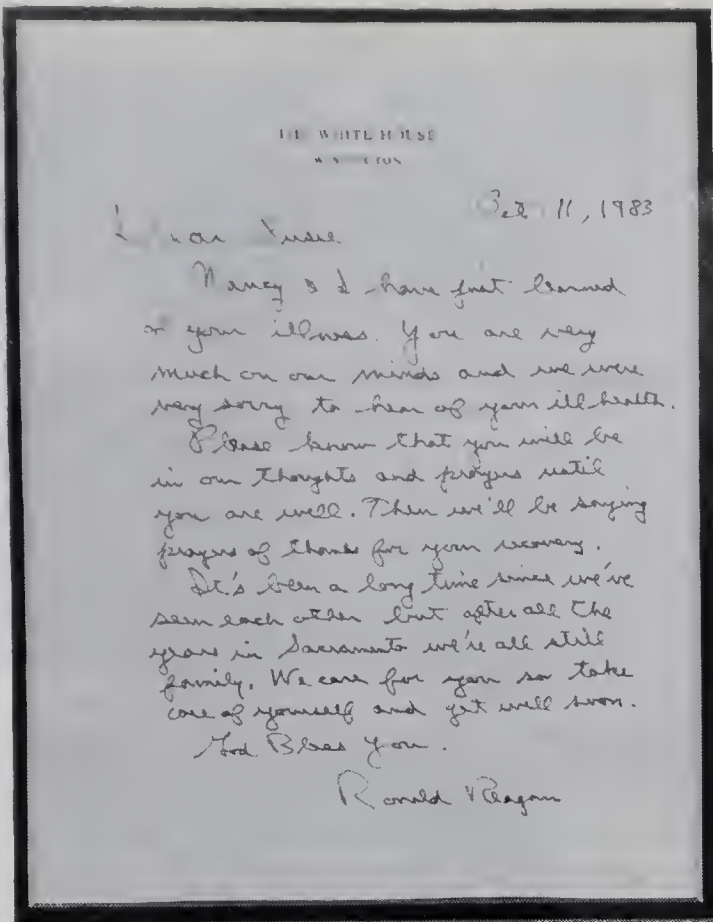 THE WHITE HOUSE
WASHINGTON
Oct 11, 1983
Dear
Nancy & I have just learned
of your illness. You are very
much on our minds and we were
very sorry to hear of your ill health.
Please know that you will be
in our thoughts and prayers until
you are well. Then we'll be saying
prayers of thanks for your recovery.
It's been a long time since we've
seen each other but after all the
years in Sacramento we're all still
family. We care for you so take
care of yourself and get well soon.
God Bless You.
Ronald Reagan